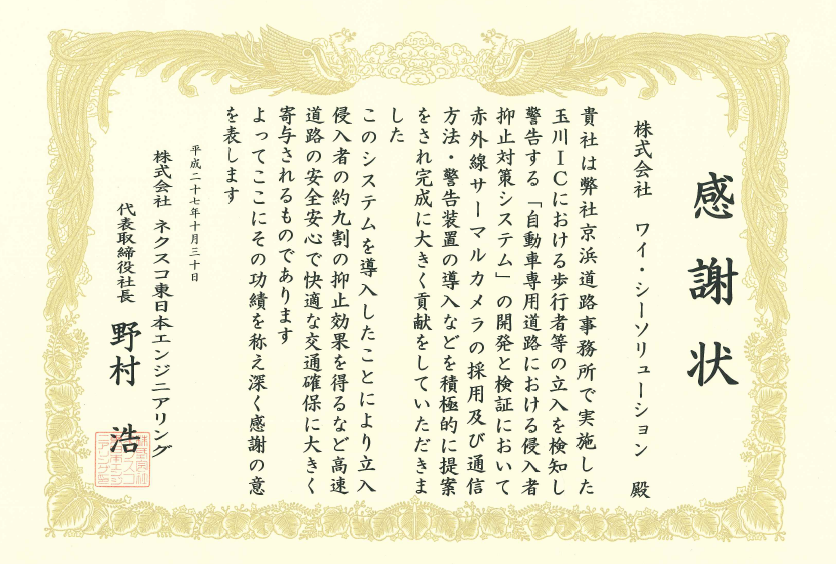 感謝状
株式会社 ワイ・シーソリューション 殿
貴社は弊社京浜道路事務所で実施した
玉川ICにおける歩行者等の立入を検知し
警告する「自動車専用道路における侵入者
抑止対策システム」の開発と検証において
赤外線サーマルカメラの採用及び通信
方法・警告装置の導入などを積極的に提案
をされ完成に大きく貢献をしていただきま
した
このシステムを導入したことにより立入
侵入者の約九割の抑止効果を得るなど高速
道路の安全安心で快適な交通確保に大きく
寄与されるものであります
よってここにその功績を称え深く感謝の意
を表します
平成二十七年十月三十日
株式会社 ネクスコ東日本エンジニアリング
代表取締役社長 野村 浩